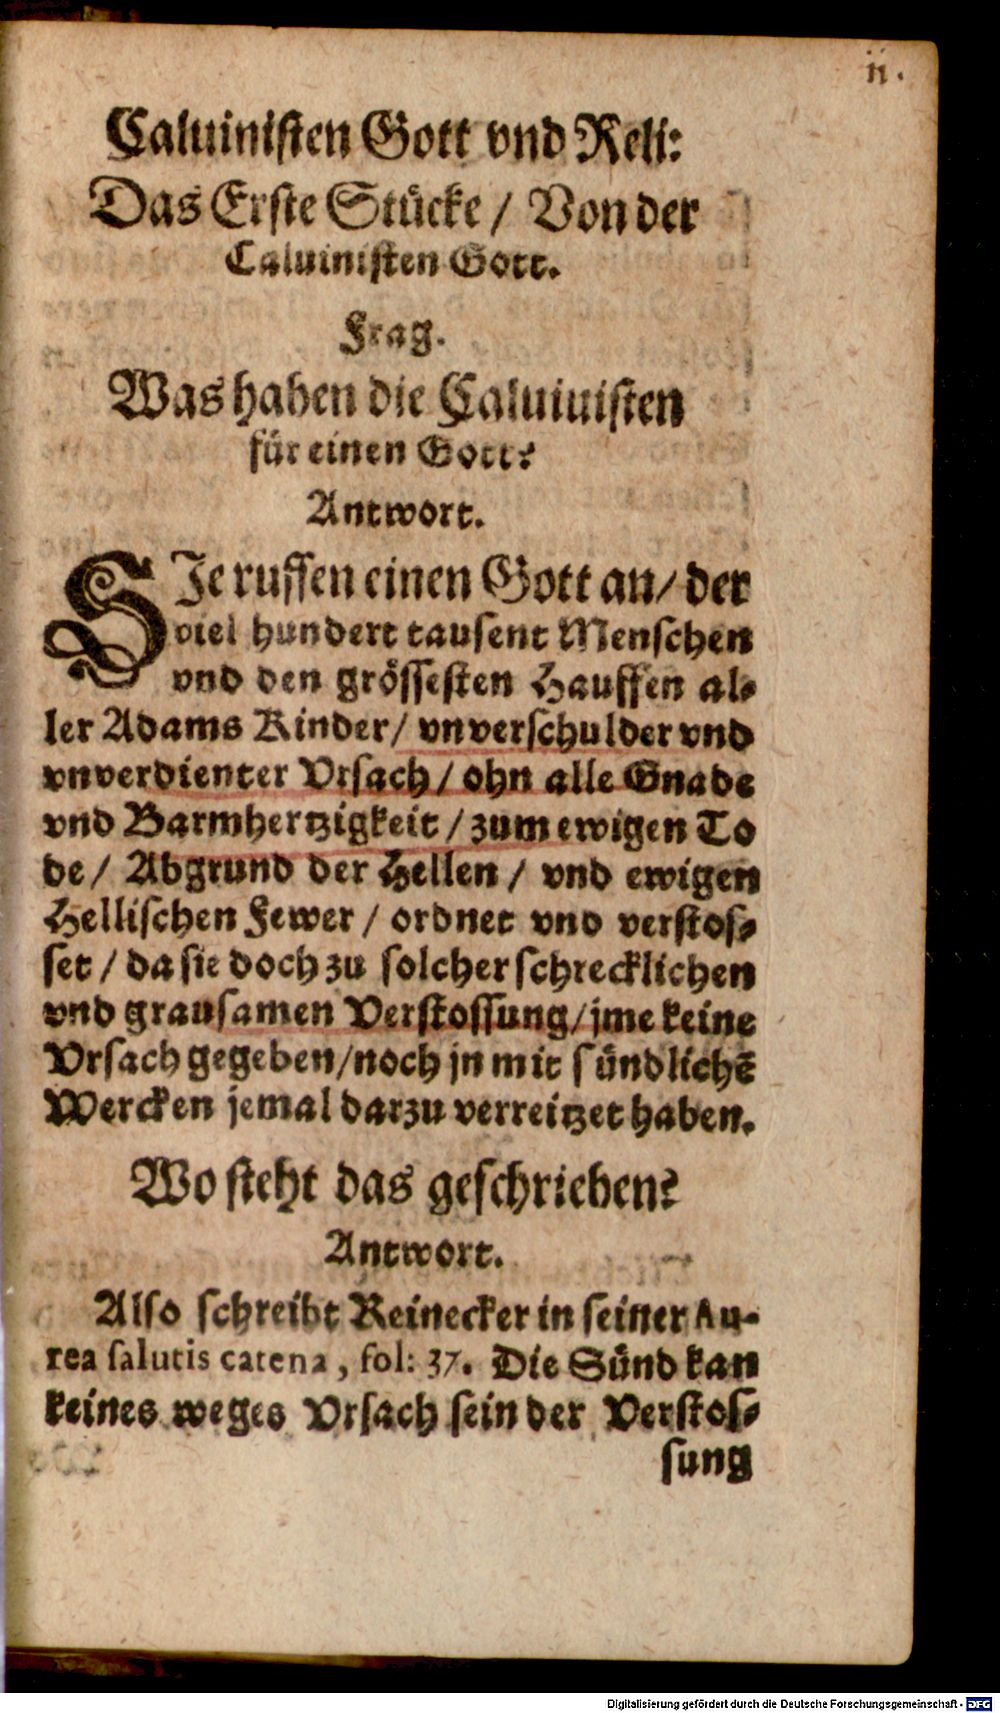 ii.
Caluinisten Gott vnd Reli:
Das Erste Stücke / Von der
Caluinisten Gott.
Frag.
Was haben die Caluiuisten
für einen Gott?
Antwort.
SJe ruffen einen Gott an / der
viel hundert tausent Menschen
vnd den grössesten Hauffen al-
ler Adams Kinder / vnverschulder vnd
vnverdienter Vrsach / ohn alle Gnade
vnd Barmhertzigkeit / zum ewigen To
de / Abgrund der Hellen / vnd ewigen
Hellischen Fewer / ordnet vnd verstos-
set / da sie doch zu solcher schrecklichen
vnd grausamen Verstossung / jme keine
Vrsach gegeben / noch jn mit sündlichē
Wercken jemal darzu verreitzet haben.
Wo steht das geschrieben?
Antwort.
Also schreibt Reinecker in seiner Au-
rea salutis catena, fol: 37. Die Sünd kan
keines weges Vrsach sein der Verstos-
sung
Digitalisierung gefördert durch die Deutsche Forschungsgemeinschaft - DFG